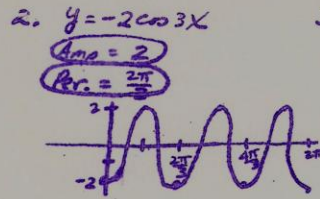 2. y = -2 cos 3x
Amp = 2
Per. = 2π/3
2
2π/3 4π/3 2π
-2